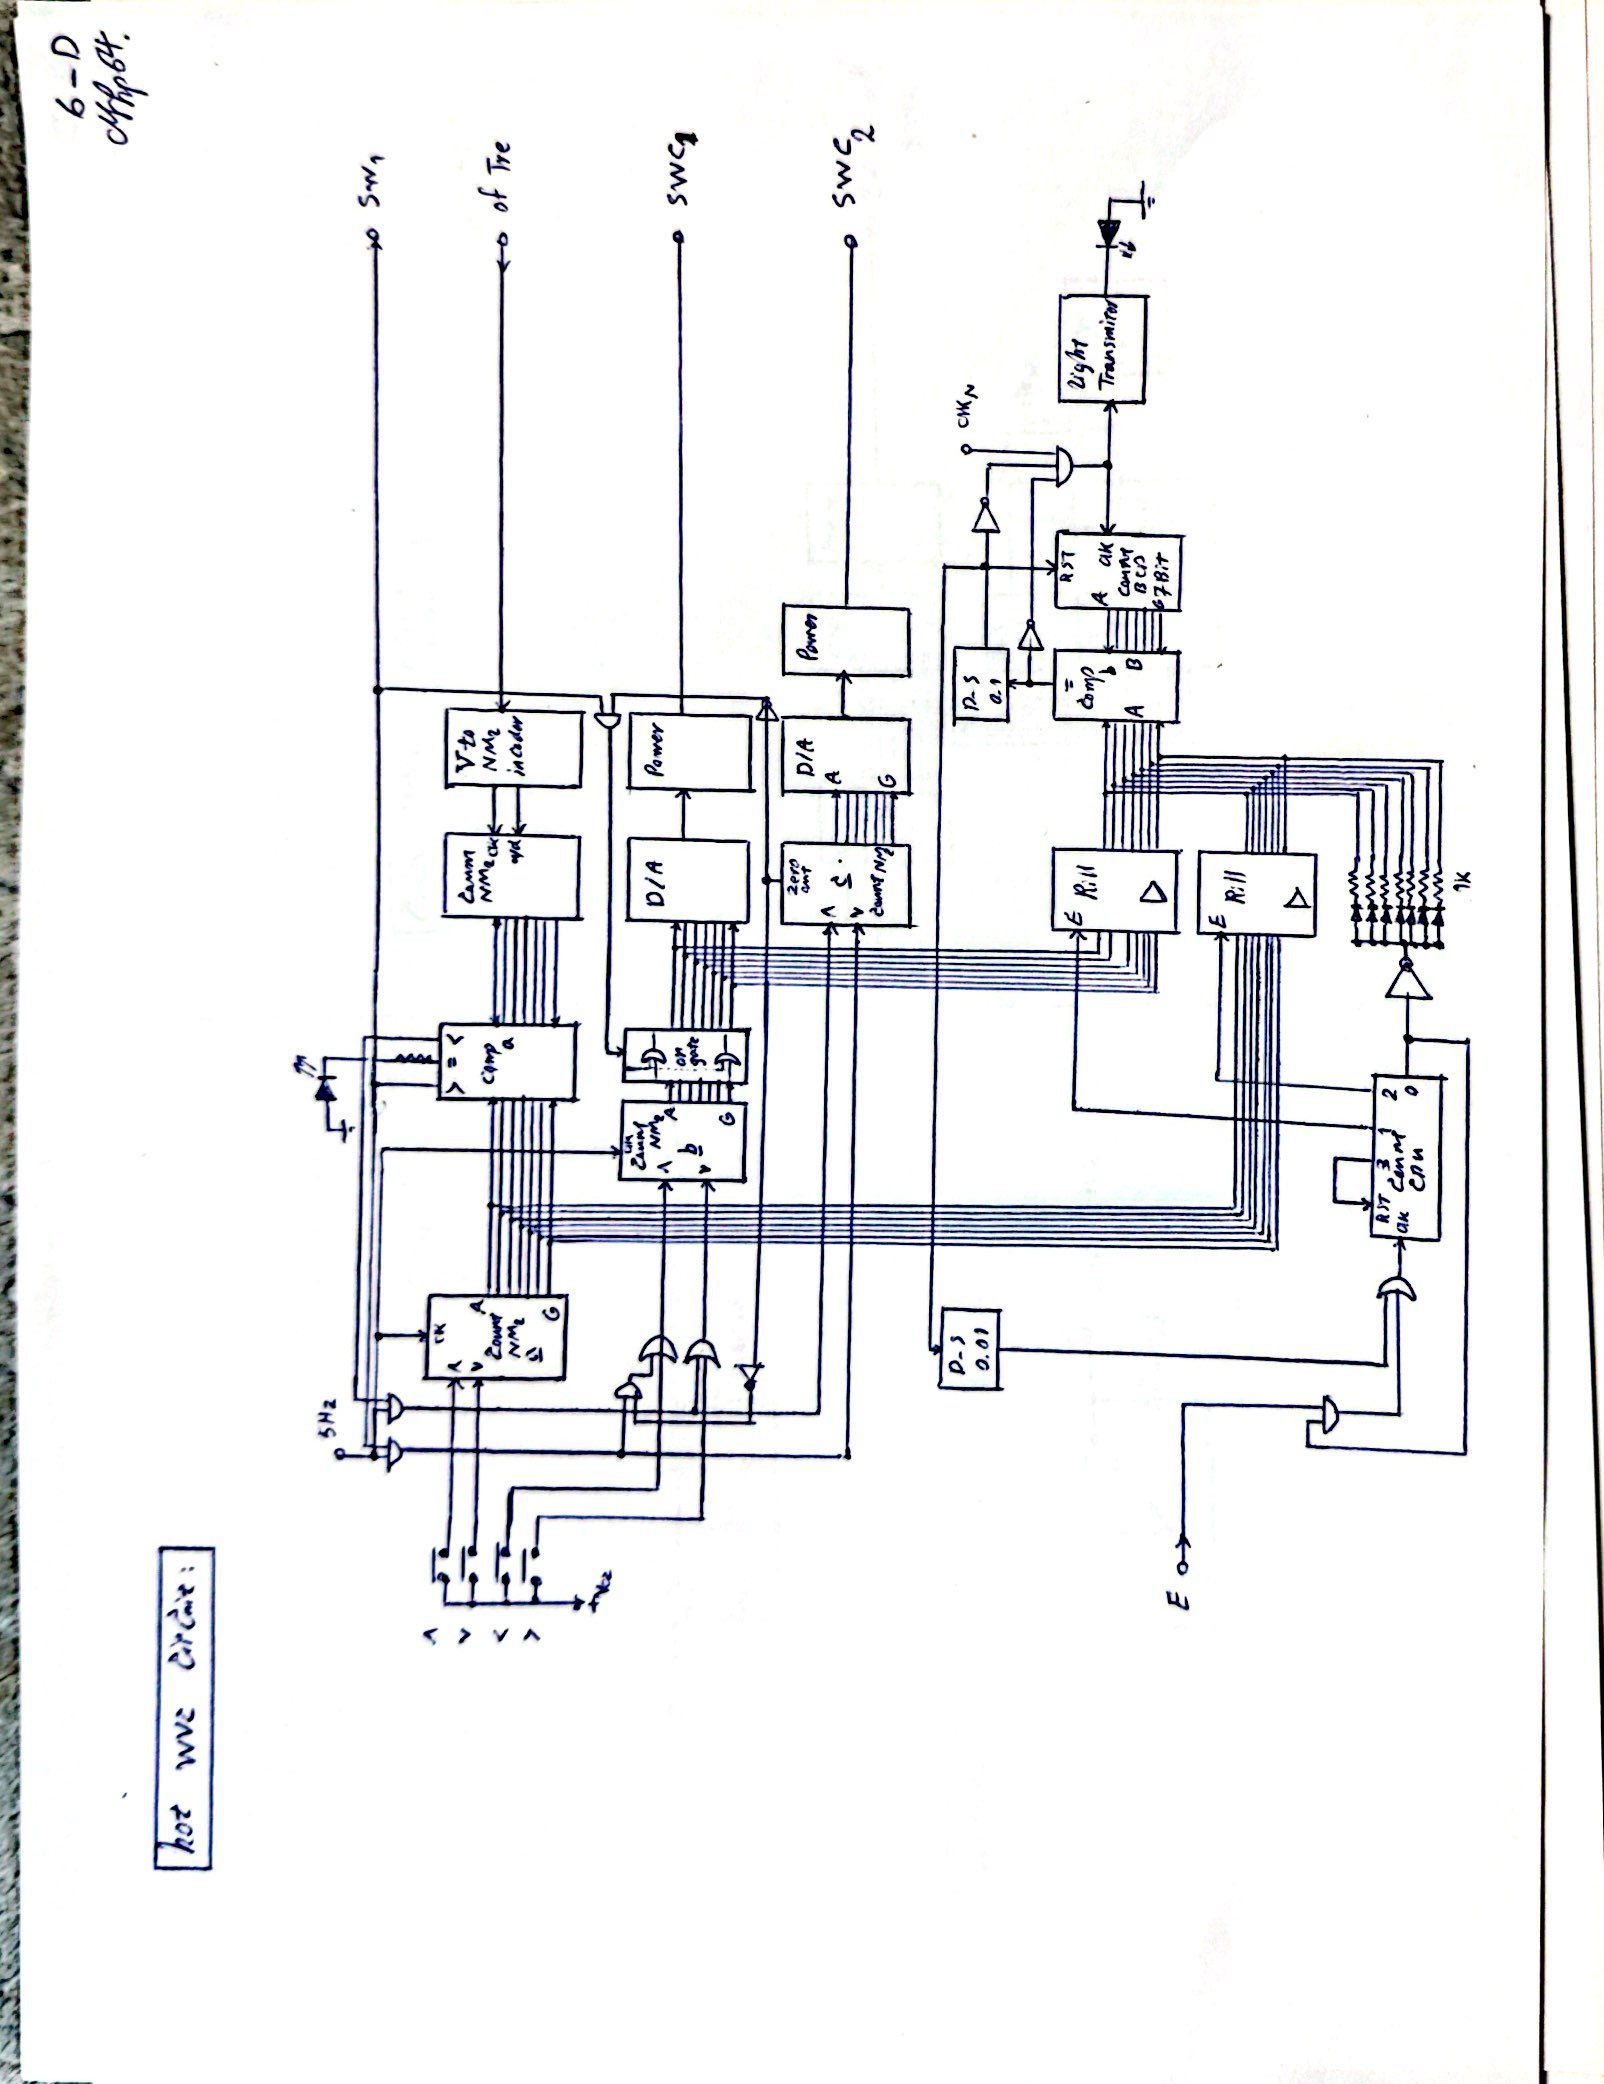 6-D
hot wvz Circuit:
5Hz
SW1
Λ
V
<
>
+Vcc
CK
Λ
V
A
Count
NM2
a
G
> = <
Comp
a
Count
NM2 CK
u/d
V to
NM2
incoder
of Tre
CK
Count
NM2
Λ
A
b
V
G
or
gate
D/A
Power
SWC1
Zero
out
Λ
c
V
Count NM2
D/A
A
G
Power
SWC2
D-S
0.01
D-S
0.1
CKN
E
Rill
=
Comp
b
A
B
RST
A
CK
Count
BCD
G 7Bit
Light
Transmitor
E
E
Rill
RST 3 1 2
CK
Count
0
1K